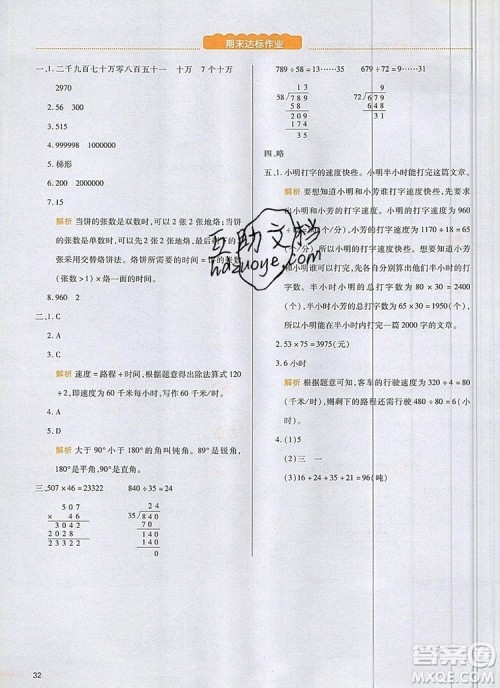 期末达标作业
一、1.二千九百七十万零八百五十一 十万 7个十万
2970
2.56 300
3.515
4.999998 1000000
5.梯形
6.2000 200
7.15
解析 当饼的张数是双数时,可以2张2张地烙;当饼
的张数是单数时,可以先2张2张地烙,剩下
张采用交替烙饼法。烙饼所需要的
(张数>1)×烙一面的时间。
8.960 2
二、1.C
2.C
解析 速度=路程÷时间,根据题意得出除法算式120
÷2,即速度为60千米每小时,写作60千米/时。
3.A
4.D
解析 大于90°小于180°的角叫钝角。89°是锐角,
180°是平角,90°是直角。
三、507×46=23322 840÷35=24
507
× 46
3042
2028
23322
24
35)840
70
140
140
0
789÷58=13……35 679÷72=9……31
13
58)789
58
209
174
35
9
72)679
648
31
四、略
五、1.小明打字的速度快些。小明半小时能打完这篇文章。
解析 要想知道小明和小芳谁打字的速度快些,需要
知道小明和小芳的打字速度,小明的打字速度是960
(个/分),小芳的打字速度是1170÷18=65
小明打字的速度快些;要
完2000字的文章,先
起来各自分别算出小
小时小明的总打字数为80×30=
半小时小芳的总打字数为65×30=1950
(个),所以小明半小时能打完一篇2000字的文章。
2.53×75=3975(元)
3.6小时
解析 根据题意可知,客车的行驶速度为480÷6=80
(千米/时),则剩下的路程客车还要行驶480÷80=6
(小时)。
4.(1)5
(2)三 一
(3)16+24+35+21=96(吨)
互助文档
hdzuoye.com
32
答案圈
MXQE.COM